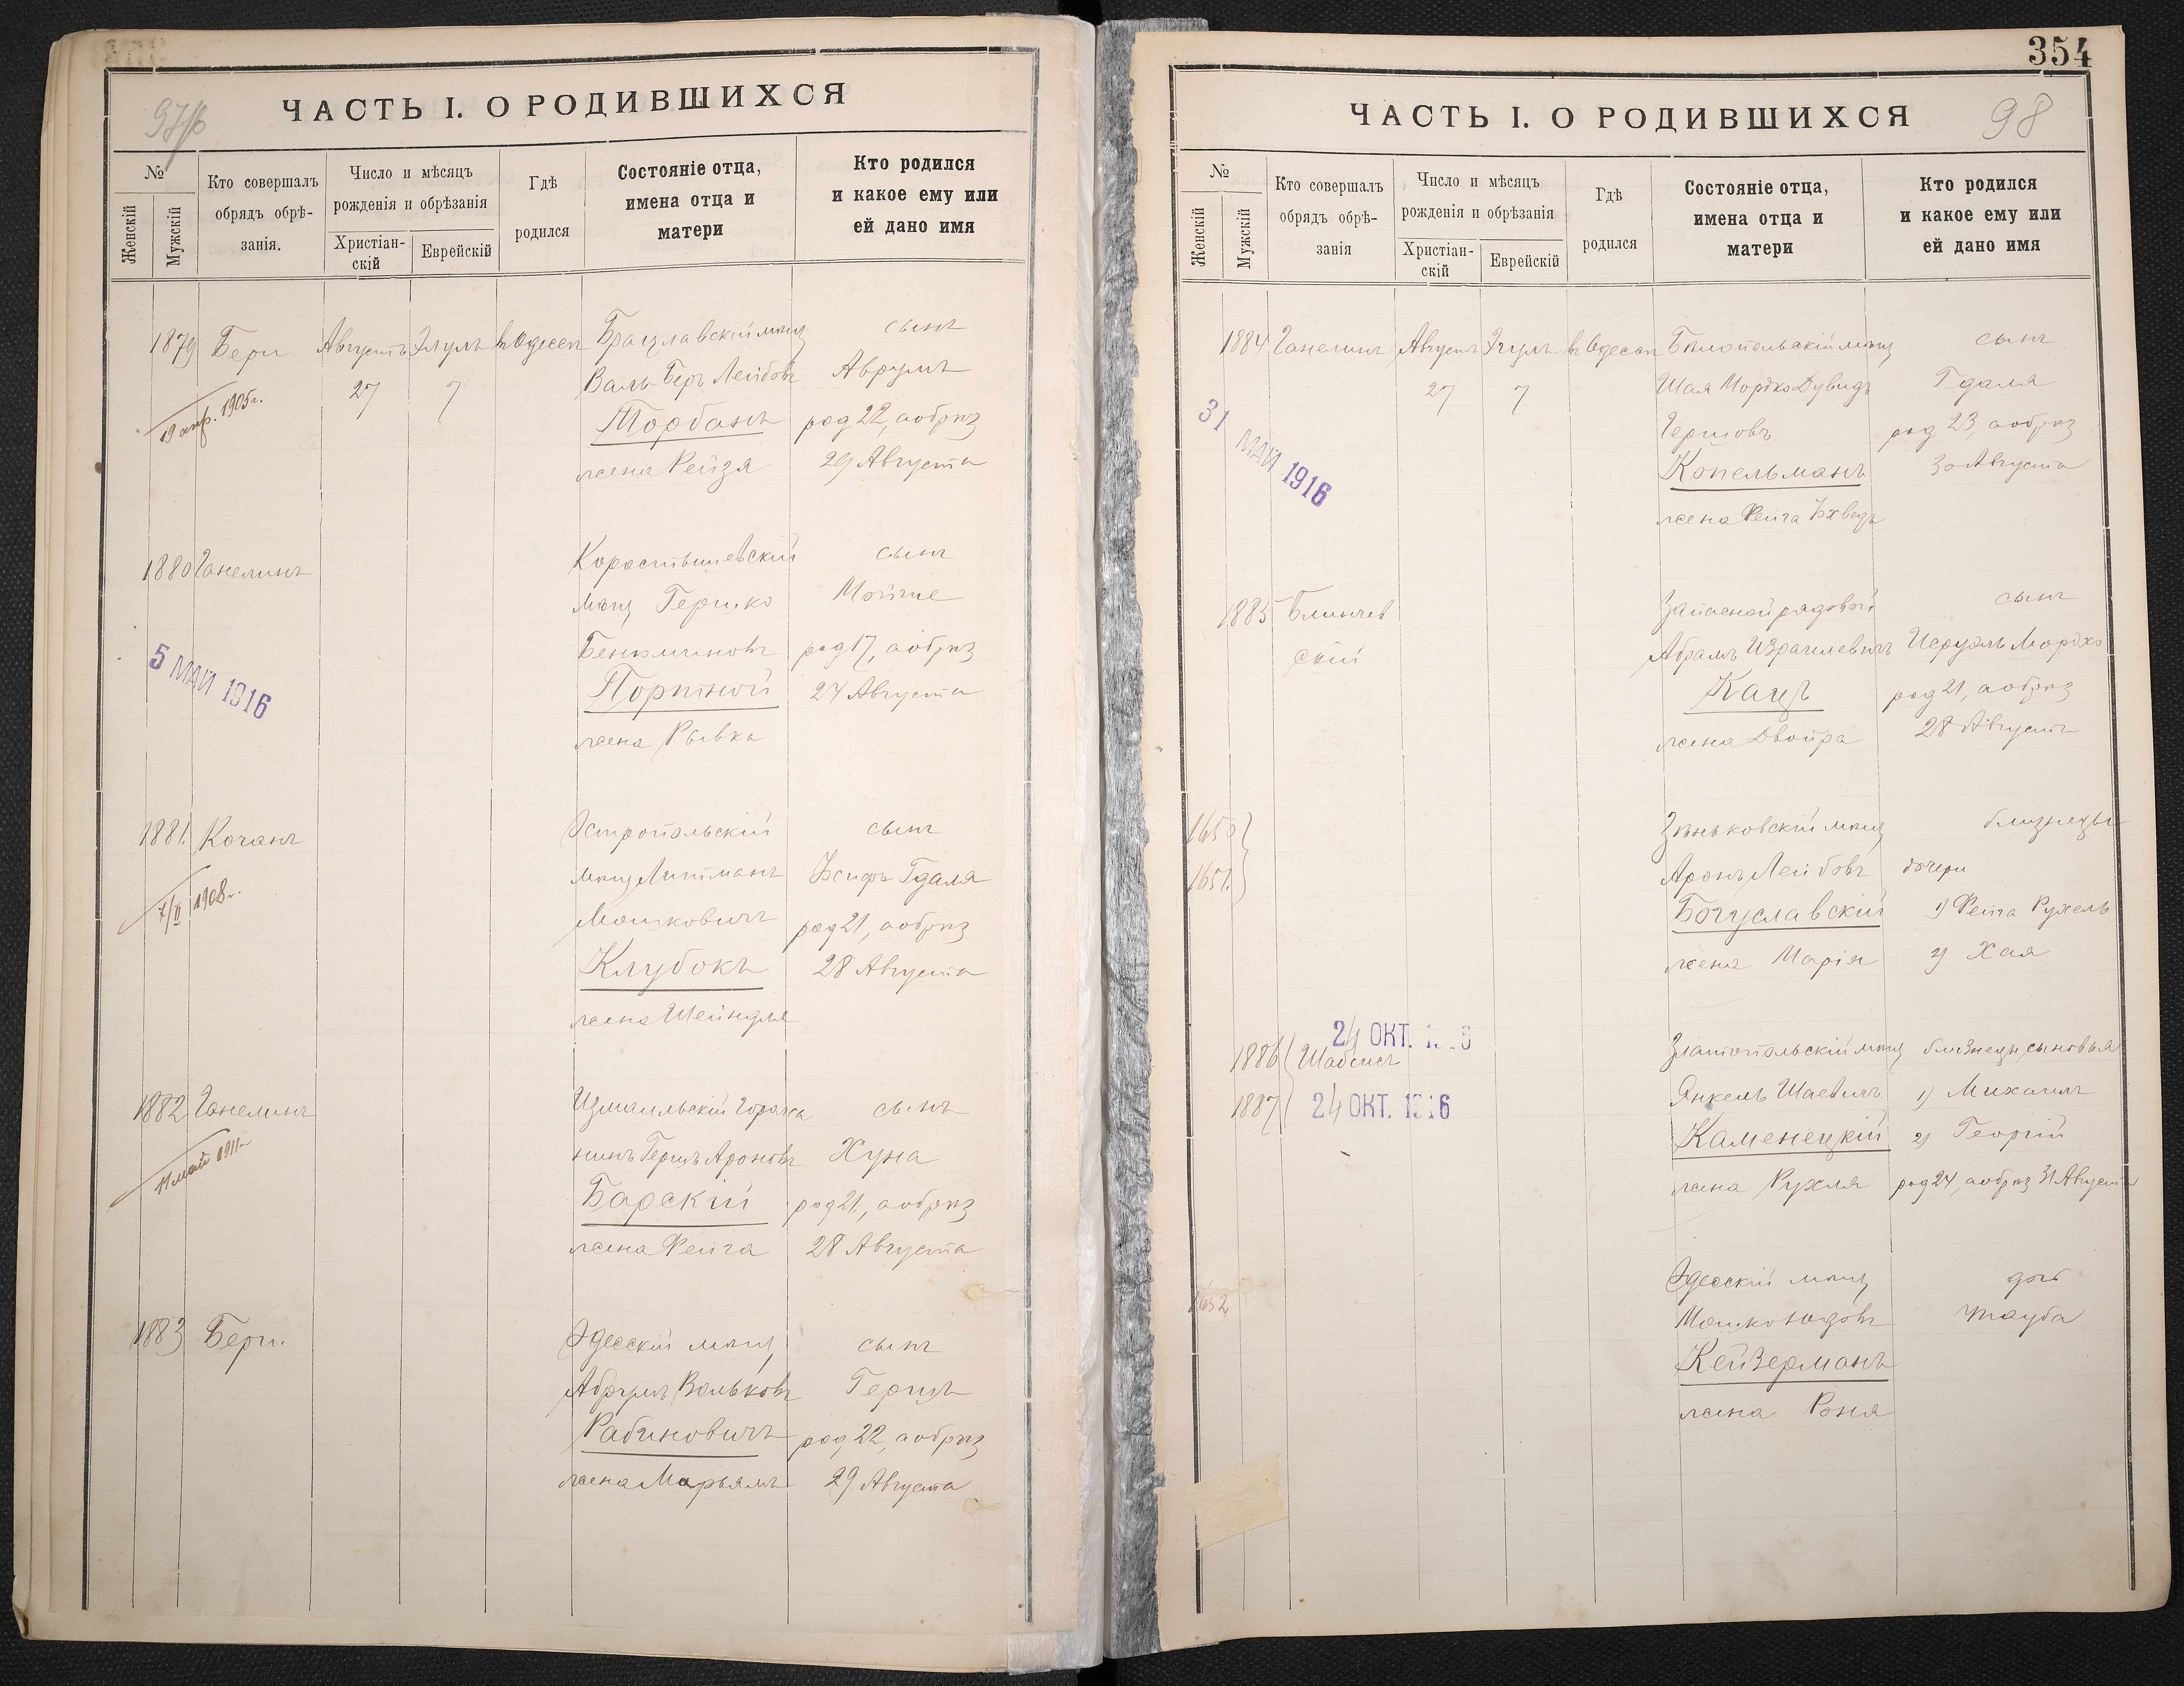 ЧАСТЬ I. О РОДИВШИХСЯ
№
Женскій
Мужскій
Кто совершалъ
обрядъ обрѣ-
занія.
Число и мѣсяцъ
рожденія и обрѣзанія
Христіан-
скій
Еврейскій
Гдѣ
родился
Состояніе отца,
имена отца и
матери
Кто родился
и какое ему или
ей дано имя
1879 Бери Августъ Элулъ въ Одессѣ Брацлавскій мѣщ сынъ
27 7 Валь-Беръ Лейбовъ Аврумъ
19 апр. 1905 г.
Торбанъ род 22, а обрѣз
жена Рейзя 29 Августа
1880 Ганелинъ Коростышевскій сынъ
мѣщ Гершко Мойше
Бенюминовъ род 17, а обрѣз
5 МАЙ 1916
Портной 24 Августа
жена Рывка
1881. Коганъ Остропольскій сынъ
мѣщ Литманъ Іосифъ Гдаля
7/II 1908 г.
Мошковичъ род 21, а обрѣз
Клубокъ 28 Августа
жена Шейндля
1882 Ганелинъ Измаильскій гражда сынъ
нинъ Гершъ Ароновъ Хуна
11 май 1911
Барскій род 21, а обрѣз
жена Фейга 28 Августа
1883 Бери Одесскій мѣщ сынъ
Абрумъ Вольковъ Гершъ
Рабиновичъ род 22, а обрѣз
жена Марьямъ 29 Августа
354
98
ЧАСТЬ I. О РОДИВШИХСЯ
№
Женскій
Мужскій
Кто совершалъ
обрядъ обрѣ-
занія
Число и мѣсяцъ
рожденія и обрѣзанія
Христіан-
скій
Еврейскій
Гдѣ
родился
Состояніе отца,
имена отца и
матери
Кто родился
и какое ему или
ей дано имя
1884 Ганелинъ Августъ Элулъ въ Одессѣ Бѣлопольскій мѣщ сынъ
27 7 Шая Мордко Дувидъ Гдаля
31 МАЙ 1916
Гершовъ род 23, а обрѣз
Копельманъ 30 Августа
жена Фейга Іохведъ
1885 Блинчев Запасной рядовой сынъ
скій Абрамъ Израилевичъ Исруэль Мордхо
Кацъ род 21, а обрѣз
жена Двойра 28 Августа
1650 Зѣньковскій мѣщ близнецы
1651. Аронъ Лейбовъ дочери
Богуславскій 1) Фейга Рухель
жена Марія 2) Хая
24 ОКТ.
1886 Шабсисъ Златопольскій мѣщ близнецы сыновья
1887 24 ОКТ. 1916 Янкель Шаевичъ 1) Михаилъ
Каменецкій 2) Георгій
жена Рухля род 24, а обрѣз 31 Августа
1652 Одесскій мѣщ дочь
Мошко Юдовъ Тауба
Кейзерманъ
жена Роня